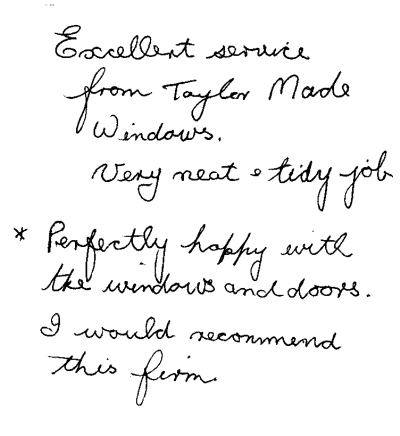 Excellent service
from Taylor Made
Windows.
Very neat & tidy job
* Perfectly happy with
the windows and doors.
I would recommend
this firm.